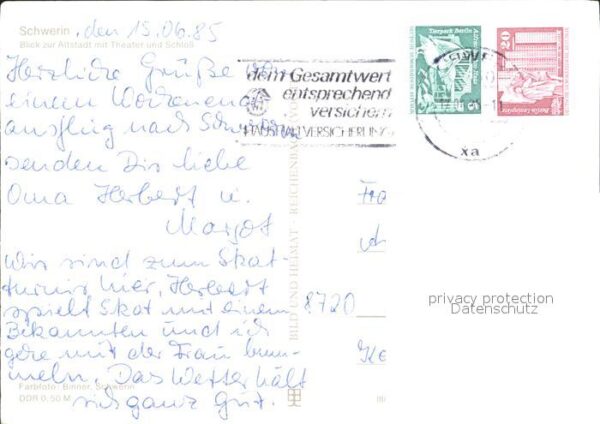 Schwerin, den 15.06.85
Blick zur Altstadt mit Theater und Schloß
Herzliche Grüße
einem Wochenend
ausflug nach Schwerin
senden Dir liebe
Oma Herbert u.
Margot
Wir sind zum Skat-
turnier hier, Herbert
spielt Skat mit einem
Bekannten und ich
gehe mit der Frau bum-
meln. Das Wetter hält
sich ganz gut.
Farbfoto: Binner, Schwerin
DDR 0,50 M
dem Gesamtwert
entsprechend
versichern
HAUSHALTVERSICHERUNG
BILD UND HEIMAT REICHENBACH
Tierpark Berlin
5
20
xa
Fra
8720
privacy protection
Datenschutz